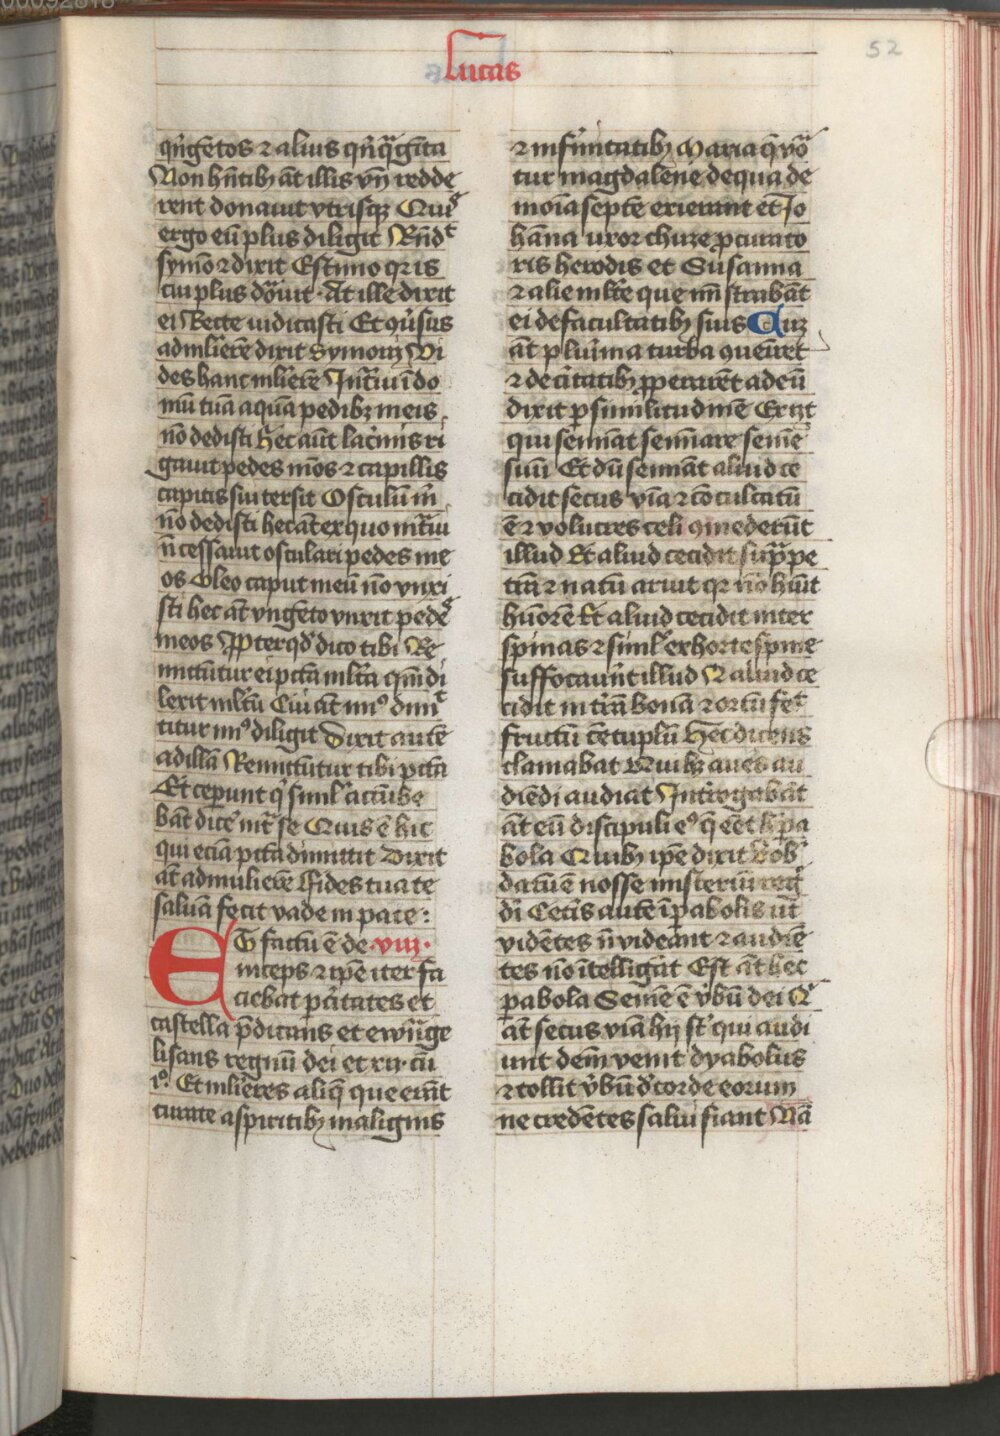 Lucas
52
qñgẽtos ⁊ alius qñq̃gĩta
Non hñtibꝫ āt illis vñ redde
rent donauit vtrisqꝫ Quis
ergo eũ plus diligit Rñdt
symõ ⁊ dixit Estimo qꝛ is
cui plus dõuit · At ille dixit
ei Recte iudicasti Et ꝯũsus
ad mlĩerẽ dixit symoni Vi
des hanc mlĩerẽ Intᷓui ĩ do
mũ tuã aquã pedibꝫ meis
nõ dedisti hec aũt lacͥmis ri
gauit pedes mẽos ⁊ capillis
capitis sui tersit Osculũ mͥ
nõ dedisti hec āt ex quo intᷓui
ñ cessauit osculari pedes me
os Oleo caput meũ nõ vnxi
sti hec āt vngẽto vnxit pedes
meos Ꝓpter qḋ dico tibi Re
mittũtur ei pctã mlta qm̃ di
lexit mltũ Cui āt minꝰ dimit
titur minꝰ diligit Dixit autẽ
ad illã Remittũtur tibi pctã
Et ceperunt qͥ siml̕ accũbe
bãt dicẽ intᷓ se Quis ẽ hic
qui eciã pctã dimittit Dixit
āt ad mulierẽ Fides tua te
saluã fecit vade in pace :
Et factũ ẽ de · viij ·
inceps ⁊ ip̃e iter fa
ciebat ꝑ cĩtates et
castella p̃dicans et ewãge
lisans regnũ dei et xij · cũ
iꝰ · Et mlĩeres aliq̃ que erãt
curate a spiritibꝫ malignis
⁊ infirmitatibꝫ Maria q̃ võ
tur magdalene de qua de
monia septẽ exierant et Jo
hãna uxor chuze ꝓcurato
ris herodis et Susanna
⁊ alie mlte que mĩstrabãt
ei de facultatibꝫ suis Cuꝫ
āt plurima turba ꝯueniret
⁊ de cĩtatibꝫ ꝓperarẽt ad eũ
dixit ꝑ similitudinẽ Exijt
qui seminat seminare semẽ
suũ Et dũ seminat aliud ce
cidit secus viã ⁊ cõculcatũ
ẽ ⁊ volucres celi ꝯmederũt
illud Et aliud cecidit suᷓ pe
trã ⁊ natũ aruit qꝛ nõ huĩt
hũorẽ Et aliud cecidit inter
spinas ⁊ siml̕ exhorte spine
suffocauẽrt illud Et aliud ce
cidit in t̃rã bonã ⁊ ortũ fecͭ
fructũ cẽtuplũ Hec dicens
clamabat Qui hꝫ aures au
diẽdi audiat Intᷓrogabãt
āt eũ discipuli eꝰ q̃ eẽt h̊ pa
bola Quibꝫ ip̃e dixit vobͥ
datũ ẽ nosse misteriũ reg
di Ceteͥs autẽ ĩ pabolis ut
vidẽtes ñ videãnt ⁊ audiẽ
tes nõ ĩtelligãt Est āt hec
pabola Semẽ ẽ v̑bũ dei Qͥ
āt secus viã hij st̕ qui audi
unt deĩn venit dyabolus
⁊ tollit v̑bũ d̕ corde eorum
ne credẽtes salui fiant Nã